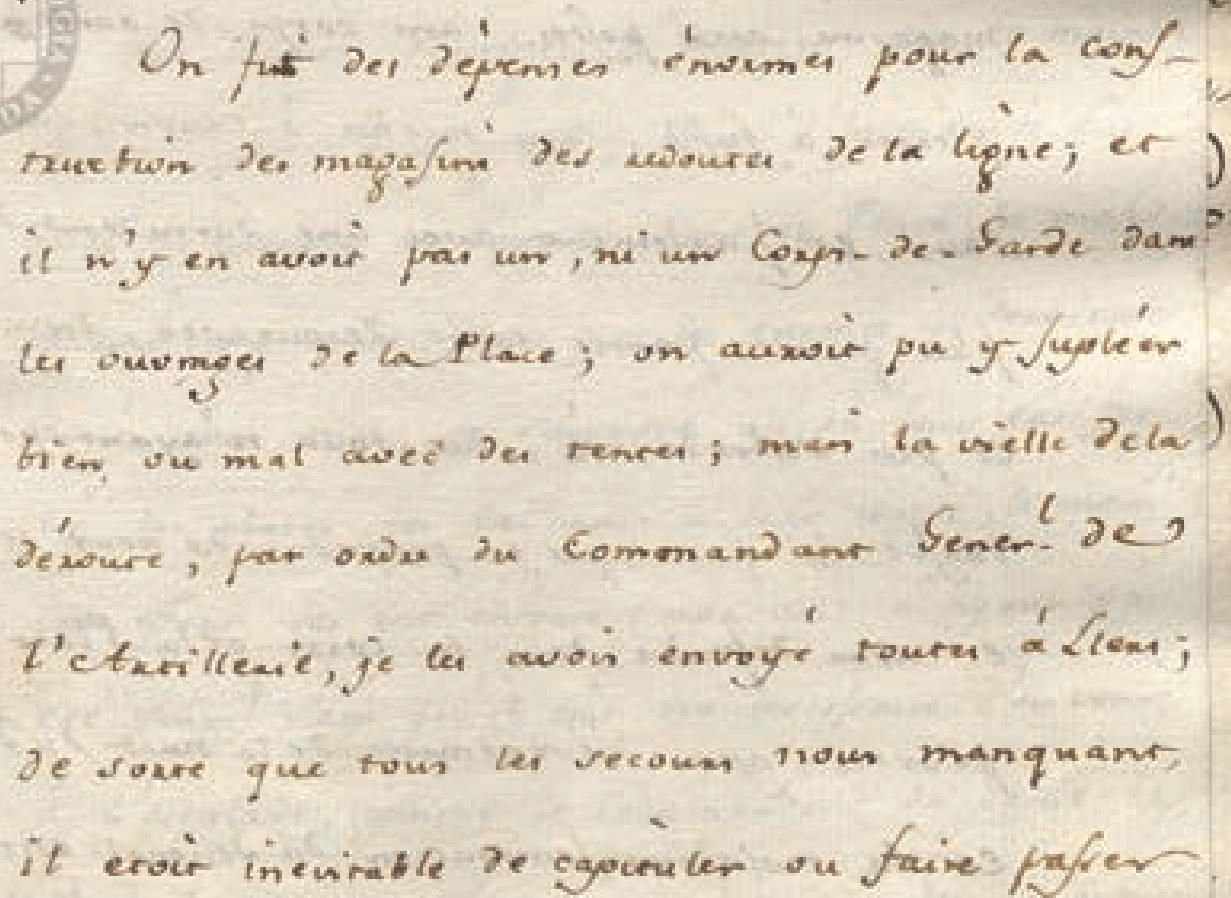 On fit des dépenses énormes pour la cons-
truction des magasins des redoutes de la ligne; et
il n'y en avoit pas un, ni un Corps-de-Garde dans
les ouvrages de la Place; on auroit pu y supléer
bien ou mal avec des tentes; mais la vielle de la
déroute, par ordre du Commandant Gener.l de
l'Artillerie, je les avois envoyé toutes á Llers;
de sorte que tous les secours nous manquant,
il etoit inevitable de capituler ou faire passer